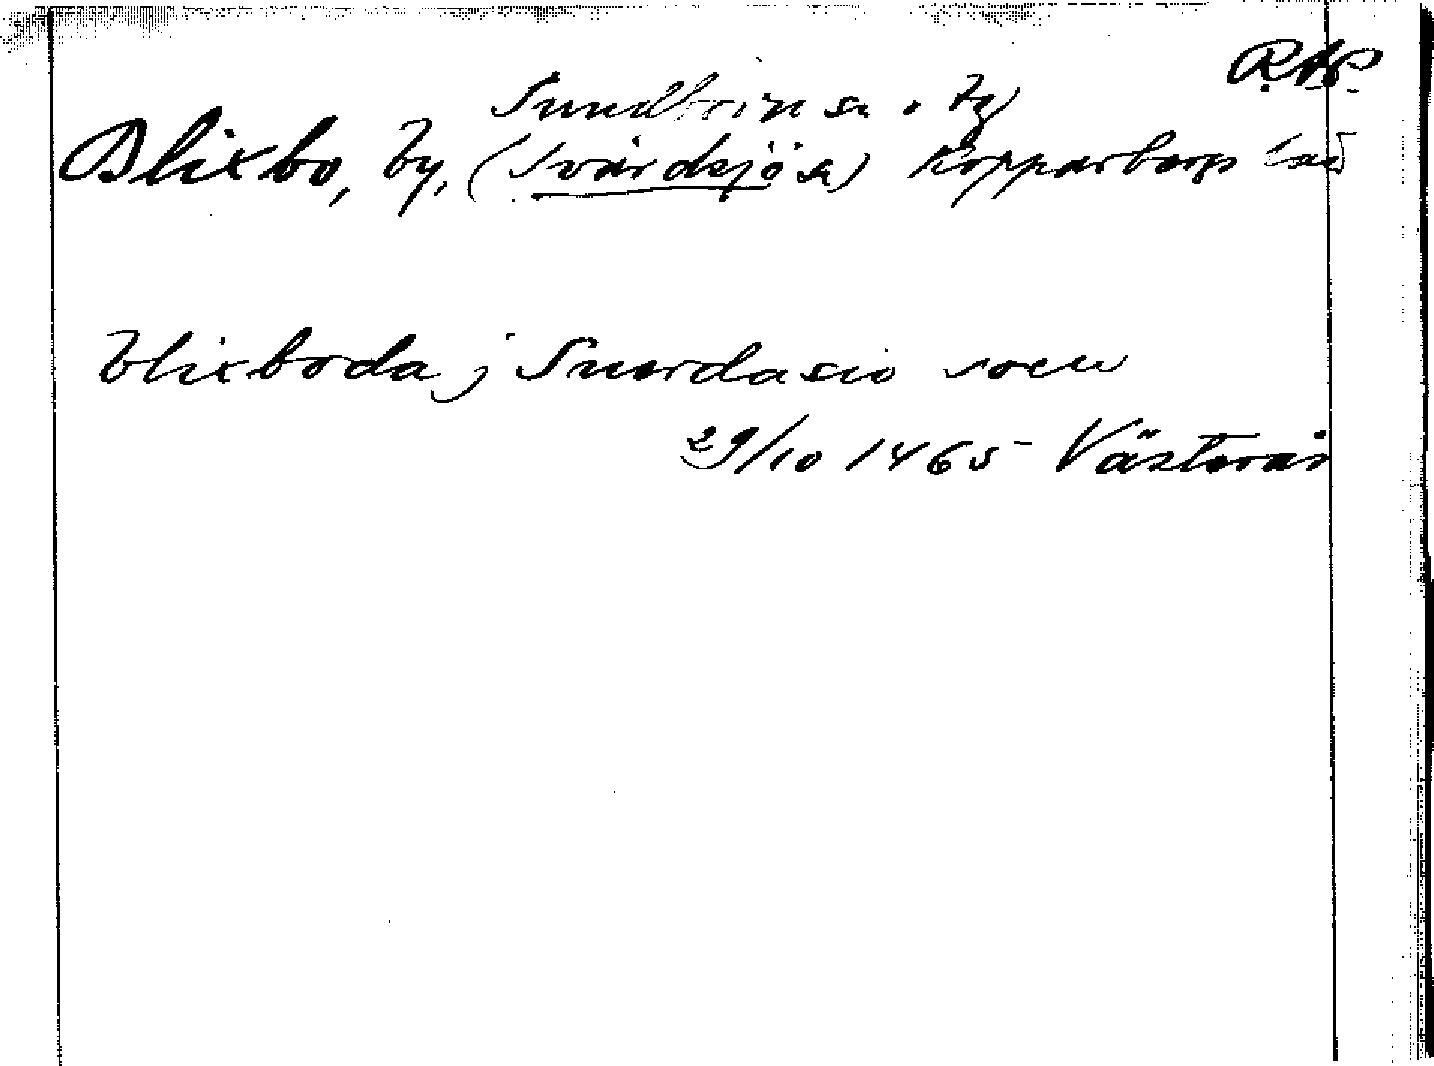 R.A.P.
Sundborn sn o. tg
Blixbo, by, (Svärdsjö sn) Kopparbergs län
blixboda j Suerdasio socn
29/10 1465 Västerås